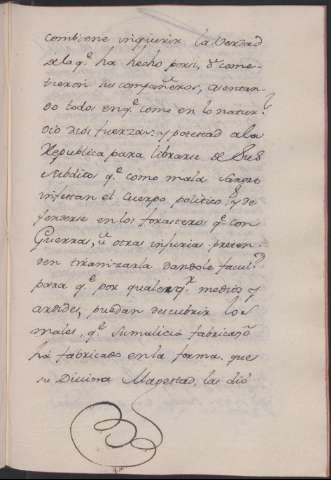 combiene inquirir la verdad
de lo q.e ha hecho por si, ô come-
tieron sus compañeros, asentan-
do todos en q.e como en lo natu-
dio fuerzas y potestad a la
Republica para librarse de Sus
Subditos q.e como mala
infestan el Cuerpo politico, y de
fenderse en los forasteros q.e con
Guerras, ù otras injurias preten-
den tiranizarla dandole facul.d
para q.e por qualesq.r medios y
ardides, puedan descubrir los
males, q.e su malicia
ha fabricado en la forma, que
su Divina Magestad, las dio